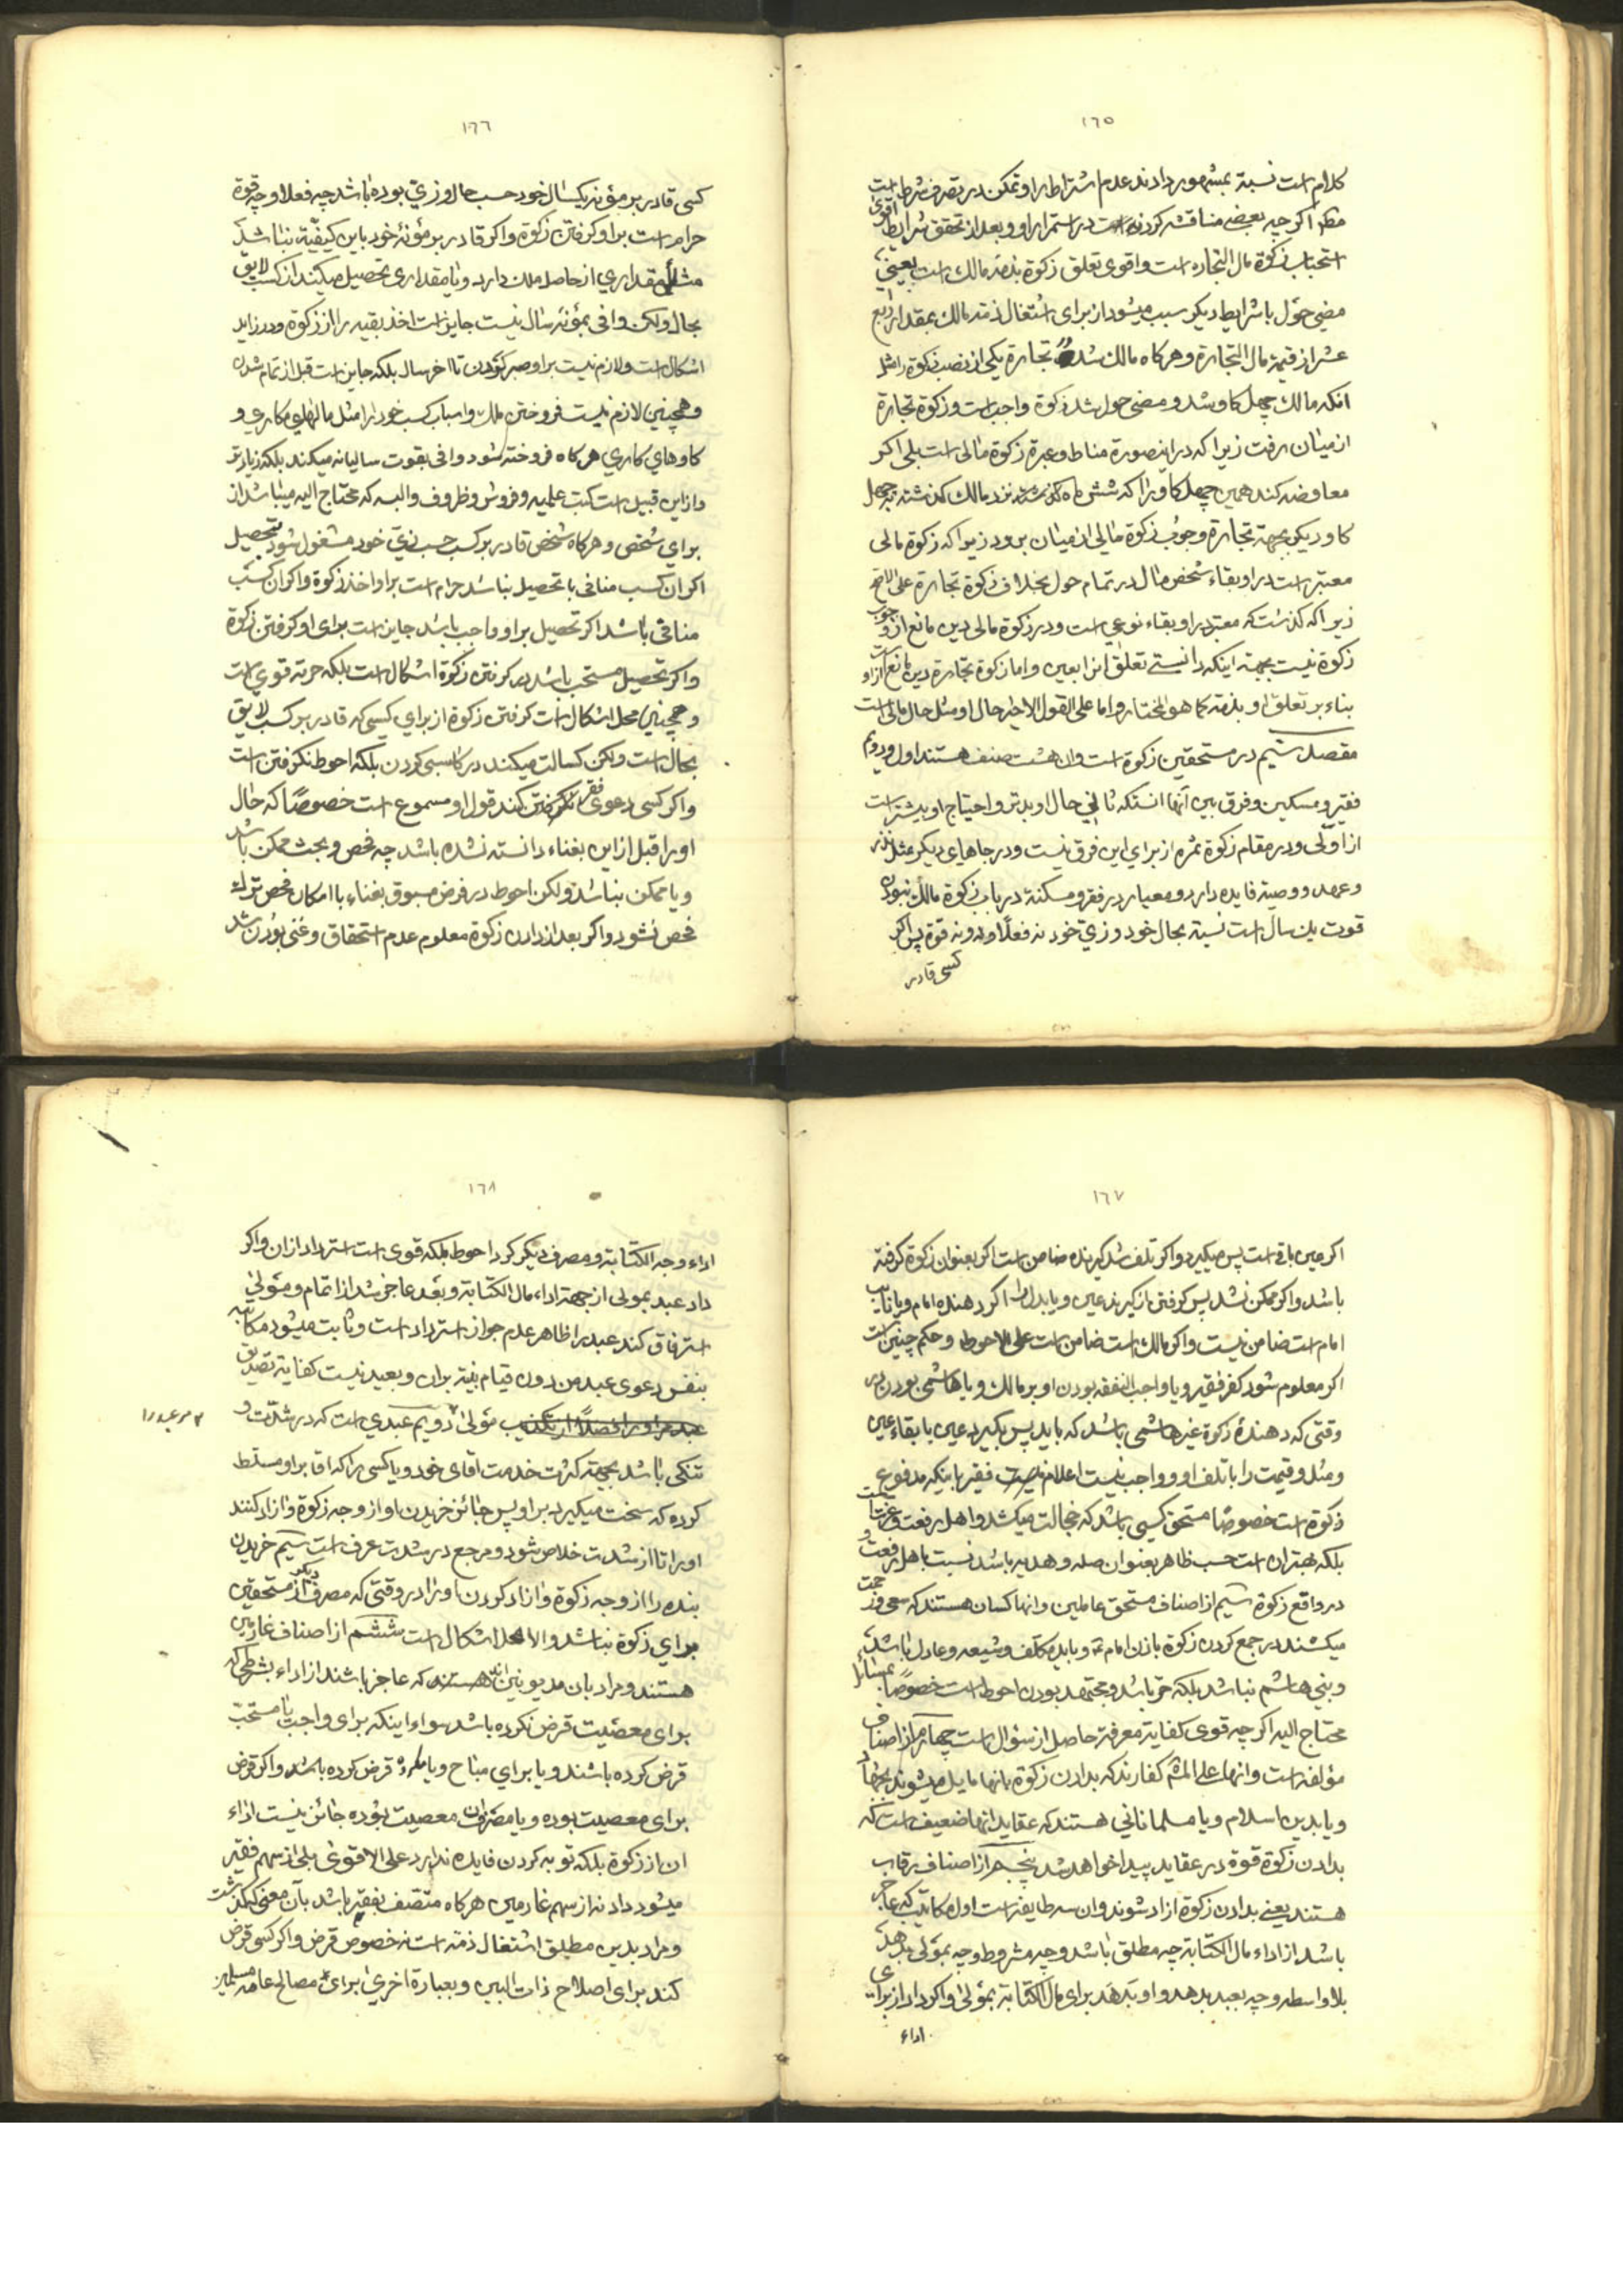 ١٦٥
كلام است نسبة بمشهور دادند عدم اشتراط را و تمكن در تصرف شرط است
اكر چه بعضى مناقشه كرده است در استمرار او و بعد از تحقق شرايط اقوى
استحباب زكوة مال التجاره است و اقوى تعلق زكوة بذمّه مالك است يعنى
مضى حول با شرايط ديكر سبب ميشود از براى اشتغال ذمّه مالك بمقدار ربع
عشر از قيمة مال التجارة و هركاه مالك شد تجارة يكى از نصب زكوة را مثل
انكه مالك چهل كاو شد و مضى حول شد زكوة واجب است و زكوة تجارة
از ميان رفت زيرا كه در اينصورة مناط و عبرة زكوة مالى است بلى اكر
معاوضه كند همين چهل كاو را كه شش ماه نزد مالك كذشته به چهل
كاو ديكر بجهة تجارة وجوب زكوة مالى از ميان برود زيرا كه زكوة مالى
معتبر است در او بقاء شخص مال در تمام حول بخلاف زكوة تجارة على الاصح
زيرا كه كذشت كه معتبر در او بقاء نوعى است و در زكوة مالى دين مانع از وجوب
زكوة نيست بجهة اينكه دانستى تعلق انرا بعين و اما زكوة تجارة دين مانع است از او
بناء بر تعلق او بذمّه كما هو المختار و اما على القول الاخير حال او مثل حال مالى است
مقصد سيم در مستحقين زكوة است و ان هشت صنف هستند اول و دويم
فقير و مسكين و فرق بين آنها انستكه ثانى حال او بدتر و احتياج او بيشتر است
از اولى و در مقام زكوة ثمره از براى اين فرق نيست و در جاهاى ديكر مثل نذر
و عهد و وصية فايده دارد و معيار در فقر و مسكنة در باب زكوة مالك نبودن
قوت يك سال است نسبة بحال خود و زىّ خود نه فعلاً و نه قوة پس اكر
كسى قادر
١٦٦
كسى قادر بر مؤنه يكسال خود حسب حال و زىّ بوده باشد چه فعلا و چه قوة
حرام است بر او كرفتن زكوة و اكر قادر بر مؤنهٔ خود باين كيفيّة نباشد
مثلاً مقدارى از حاصل ملك دارد و يا مقدارى تحصيل ميكند از كسب لايق
بحال ولكن وافى بمؤنه سال نيست جايز است اخذ بقيه را از زكوة و در زايد
اشكال است و لازم نيست بر او صبر كردن تا اخر سال بلكه جايز است قبل از تمام شدن
و همچنين لازم نيست فروختن ملك و اسباب كسب خود را مثل مالهاى مكارى و
كاوهاى كارى هركاه فروخته شود وافى بقوت ساليانه ميكند بلكه زيادتر
و از اين قبيل است كتب علميه و فروش و ظروف و البسه كه محتاج اليه ميباشد از
براى شخص و هركاه شخص قادر بر كسب حسب زىّ خود مشغول شود بتحصيل
اكر ان كسب منافى با تحصيل نباشد حرام است بر او اخذ زكوة و اكر ان كسب
منافى باشد اكر تحصيل بر او واجب باشد جايز است براى او كرفتن زكوة
و اكر تحصيل مستحب باشد در كرفتن زكوة اشكال است بلكه حرمة قوى است
و همچنين محل اشكال است كرفتن زكوة از براى كسى كه قادر بر كسب لايق
بحال است ولكن كسالت ميكند در كاسبى كردن بلكه احوط نكرفتن است
و اكر كسى دعوى فقر كند قول او مسموع است خصوصًا كه حال
او را قبل از اين بغناء دانسته نشده باشد چه فحص و بحث ممكن باشد
و يا ممكن نباشد ولكن احوط در فرض مسبوق بغناء با امكان فحص ترك
فحص نشود و اكر بعد از دادن زكوة معلوم عدم استحقاق و غنى بودن شد
١٦٧
اكر عين باقى است پس ميكيرد و اكر تلف شد كيرنده ضامن است اكر بعنوان زكوة كرفته
باشد و اكر ممكن نشد پس كرفتن از كيرنده عين و يا بدل را اكر دهنده امام و يا نايب
امام است ضامن نيست و اكر مالك است ضامن است على الاحوط و حكم چنين است
اكر معلوم شود كفر فقير و يا واجب النفقه بودن او بر مالك و يا هاشمى بودن در
وقتى كه دهندهٔ زكوة غير هاشمى باشد كه بايد پس بكيرد عين با بقاء عين
و مثل و قيمت را با تلف او و واجب نيست اعلام فقير باينكه مدفوع
زكوة است خصوصًا مستحق كسى باشد كه خجالت ميكشد و اهل رفعت و عزت است
بلكه بهتر ان است حسب ظاهر بعنوان صله و هديه باشد نسبت باهل رفعت و
در واقع زكوة سيم از اصناف مستحق عاملين و انها كسان هستند كه سعى و زحمت
ميكشند در جمع كردن زكوة باذن امام و بايد مكلّف و شيعه و عادل باشند
و بنى هاشم نباشد بلكه حرّ باشد و مجتهد بودن احوط است خصوصًا بمسائل
محتاج اليه اكر چه قوى كفاية معرفة حاصل از سؤال است چهارم از اصناف
مؤلفه است و انها على المشهور كفارند كه بدادن زكوة بانها مايل ميشوند بجهاد
و يا بدين اسلام و يا مسلمانانى هستند كه عقايد انها ضعيف است كه
بدادن زكوة قوة در عقايد پيدا خواهد شد پنجم از اصناف رقاب
هستند يعنى بدادن زكوة ازاد شوند و ان سه طايفه است اول مكاتب كه عاجز
باشد از اداء مال الكتابة چه مطلق باشد و چه مشروط و چه بمولى بدهد
بلا واسطه و چه بعبد بدهد و او بدهد براى مال الكتابة بمولى و اكر داد از براى
اداء
١٦٨
اداء وجه الكتابة و مصرف ديكر كرد احوط بلكه قوى است استرداد از ان و اكر
داد عبد بمولى از جهة اداء مال الكتابة و بعد عاجز شد از اتمام و مولى
استرقاق كند عبد را ظاهر عدم جواز استرداد است و ثابت ميشود مكاتبه
بنفس دعوى عبد من دون قيام بيّنه بران و بعيد نيست كفاية تصديق
مولى دويم عبدى است كه در شدّت و
مر عبد را
تنكى باشد بجهة كثرت خدمت اقاى خود و يا كسى را كه اقا بر او مسلط
كرده كه سخت ميكيرد بر او پس جائز خريدن او از وجه زكوة و ازاد كنند
او را تا از شدت خلاص شود و مرجع در شدت عرف است سيم خريدن
بنده را از وجه زكوة و ازاد كردن او را در وقتى كه مصرف ديكر از مستحقين
براى زكوة نباشد و الا محل اشكال است ششم از اصناف غارمين
هستند و مراد بان مديونين اند كه عاجز باشند از اداء بشرطى كه
براى معصيت قرض نكرده باشد سواء اينكه براى واجب يا مستحب
قرض كرده باشند و يا براى مباح و يا مكروه قرض كرده باشد و اكر قرض
براى معصيت بوده و يا مصرف ان معصيت بوده جائز نيست اداء
ان از زكوة بلكه توبه كردن فايده ندارد على الاقوى بلى از سهم فقير
ميشود داد نه از سهم غارمين هركاه متصف بفقر باشد بآن معنى كه كذشت
و مراد بدين مطلق اشتغال ذمّه است نه خصوص قرض و اكر كسى قرض
كند براى اصلاح ذات البين و بعبارة اخرى براى مصالح عامه مسلمين